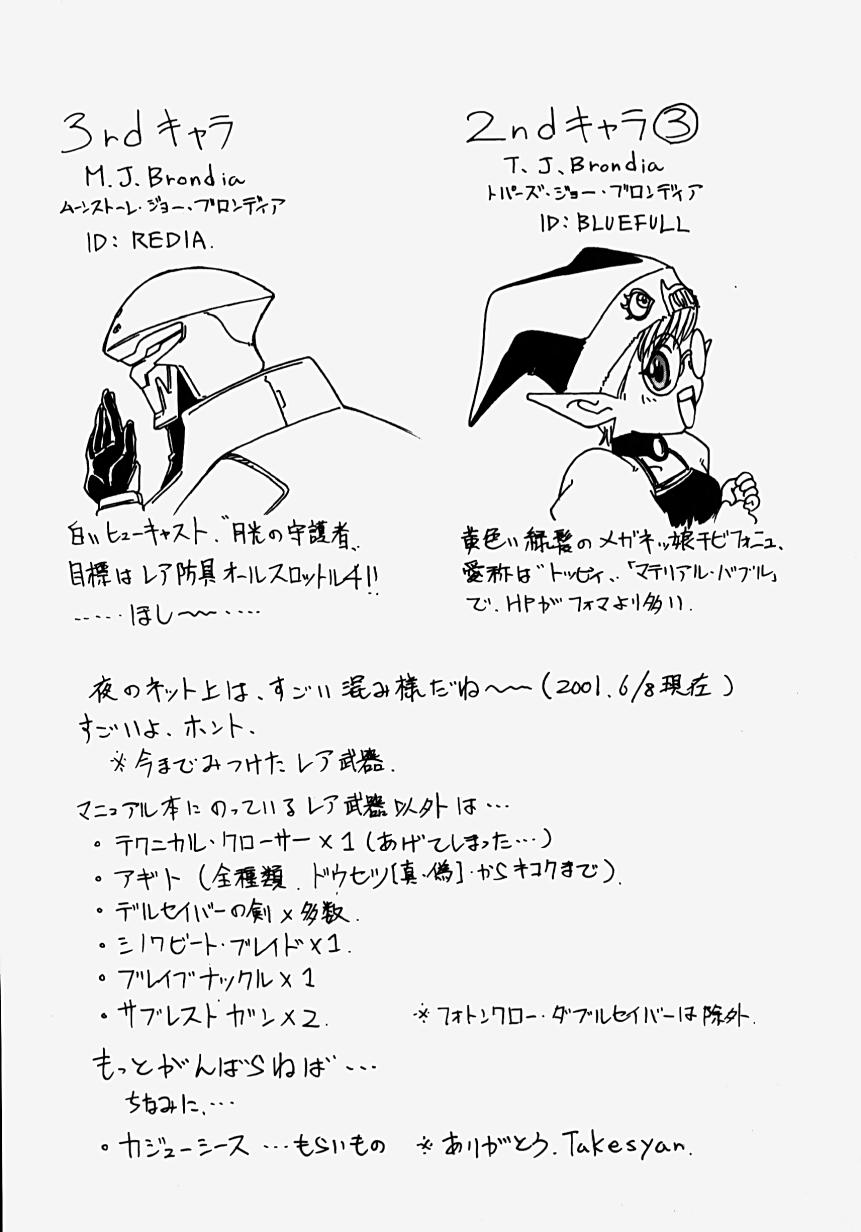 3rdキャラ
M.J.Brondia
ムーンストーレ・ジョー・ブロンディア
ID: REDIA.
白いヒューキャスト、"月光の守護者"
目標はレア防具オールスロットル4!!
‥‥‥ほし〜〜‥‥
2ndキャラ③
T.J.Brondia
トパーズ・ジョー・ブロンディア
ID: BLUEFULL
黄色い緑髪のメガネッ娘チビフォニュ、
愛称は"トッピィ"、「マテリアル・バブル」
で、HPがフォマより多い.
夜のネット上は、すごい混み様だね〜〜(2001.6/8現在)
すごいよ、ホント、
※今までみつけたレア武器.
マニュアル本にのっているレア武器以外は…
・テクニカル・クローサー×1(あげてしまった…)
・アギト(全種類.ドウセツ[真・偽]・からキコクまで).
・デルセイバーの剣×多数.
・シノワビート・ブレイド×1.
・ブレイブナックル×1
・サプレストガン×2. ※フォトンクロー・ダブルセイバーは除外.
もっとがんばらねば…
ちなみに、…
・カジューシース…もらいもの ※ありがとう.Takesyan.